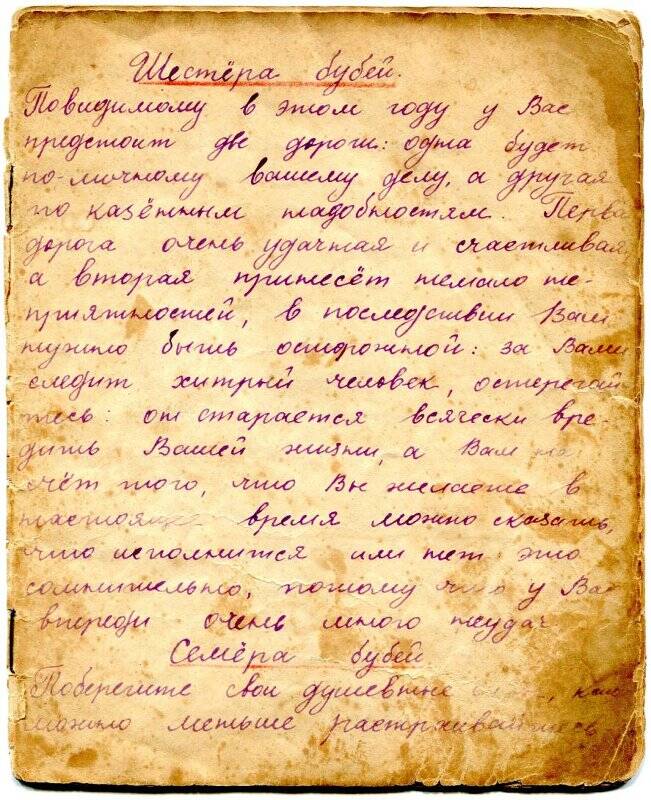 Шестёра бубей.
Повидимому в этом году у Вас
предстоит две дороги: одна будет
по-личному вашему делу, а другая
по казённым надобностям. Перва
дорога очень удачная и счастливая,
а вторая принесёт немало не-
приятностей, в последствии Вам
нужно быть осторожной: за Вами
следит хитрый человек, остерегай
тесь: он старается всячески вре-
дить Вашей жизни, а Вам на
счёт того, что Вы желаете в
настоящее время можно сказать,
что исполнится или нет это
сомнительно, потому что у Вас
впереди очень много неудач
Семёра бубей
Поберегите свои душевные как
можно меньше расстраивайтесь